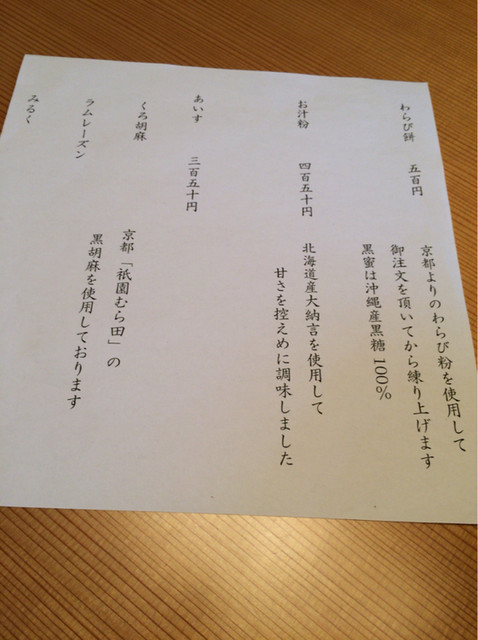 わらび餅　五百円
京都よりのわらび粉を使用して
御注文を頂いてから練り上げます
黒蜜は沖縄産黒糖100%
お汁粉　四百五十円
北海道産大納言を使用して
甘さを控えめに調味しました
あいす　三百五十円
くろ胡麻
京都「祇園むら田」の
黒胡麻を使用しております
ラムレーズン
みるく